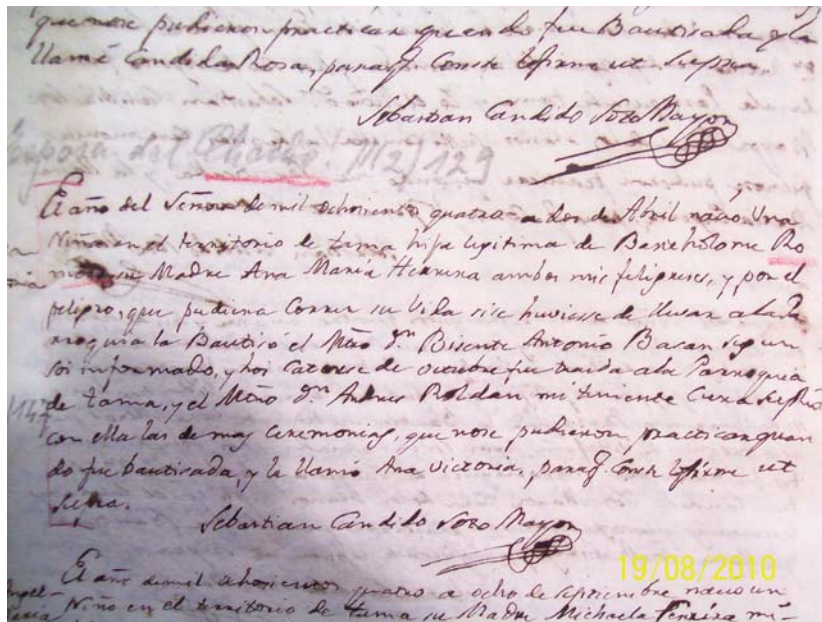 que nose pudieron practicar quando fue Bautisada y la
llamé Candida Rosa, paraq.e Conste lofirme ut Supra
Sebastian Candido Soto Mayor
Esposa del Chacho. 11(2)129
El año del Señor de mil ochosientos quatro a dos de Abril nacio Una
Niña en el territorio de tama hija legitima de Bartholome Ro
su Madre Ana María Herrera ambos mis feligreses, y por el
peligro, que pudiera Correr su Vida sise huviesse de llevar ala Pa
rroquia la Bautisó el Mtro Dn Bisente Antonio Basan segun
soi informado, y hoi Catorse de octubre fue traida ala Parroquia
de tama, y el Mtro Dn Andres Roldan mi teniente Cura Suplió
con ella las demas Ceremonias, que nose pudieron practicar quan
do fue bautisada, y la llamó Ana Victoria, paraq.e Conste lofirme ut
Supra.
Sebastian Candido Soto Mayor
19/08/2010
El año demil ochosientos quatro a ocho de Septiembre nacio un
Niño en el territorio de tama su Madre Michaela mi-